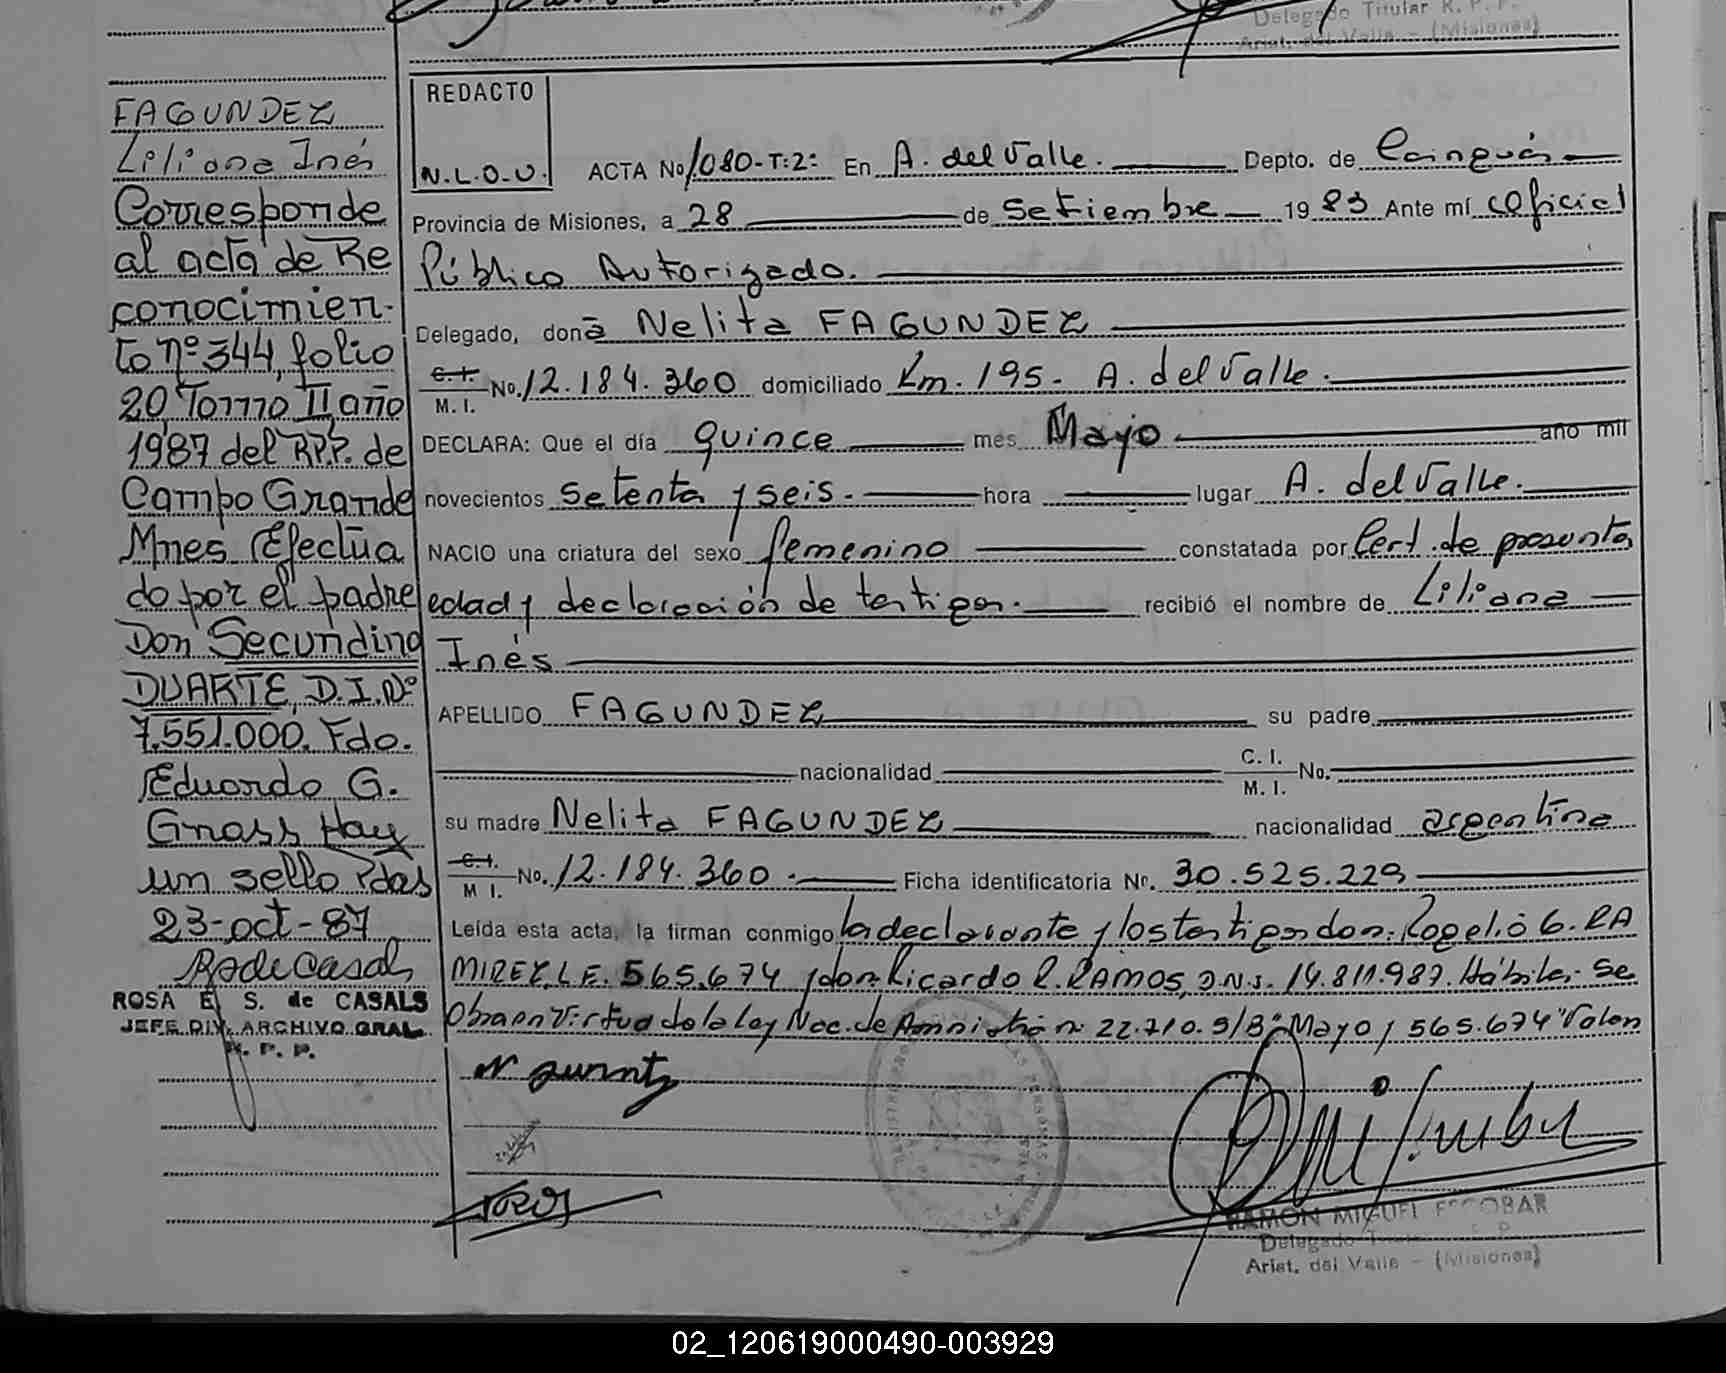 Delegado Titular R. P. P.
Arist. del Valle - (Misiones)
FAGUNDEZ
Liliana Inés
Corresponde
al acta de Re
conocimien-
to nº 344, folio
20, Tomo II año
1987 del R.P.P. de
Campo Grande
Mnes. Efectua
do por el padre
Don Secundino
DUARTE, D.I. Nº
7.551.000. Fdo.
Eduardo G.
Grass Hay
un sello Pdas
23-oct-87
ROSA E. S. de CASALS
JEFE DIV. ARCHIVO GRAL.
R. P. P.
REDACTO
N.L.O.U.
ACTA No 1080-T:2: En A. del Valle. Depto. de Cainguás
Provincia de Misiones, a 28 de Setiembre 1983 Ante mí Oficial
Público Autorizado.
Delegado, doña Nelita FAGUNDEZ
C.I. M. I. No. 12.184.360 domiciliado Km. 195- A. del Valle.
DECLARA: Que el día quince mes Mayo año mil
novecientos setenta y seis. hora lugar A. del Valle.
NACIO una criatura del sexo femenino constatada por Cert. de presunta
edad y declaración de testigos. recibió el nombre de Liliana
Inés
APELLIDO FAGUNDEZ su padre
nacionalidad C. I. M. I. No.
su madre Nelita FAGUNDEZ nacionalidad argentina
C.I. M I. No. 12.184.360. Ficha identificatoria Nº. 30.525.229
Leída esta acta, la firman conmigo la declarante y los testigos don: Rogelio G. RA
MIREZ, L.E. 565.674 y don: Ricardo R. RAMOS, D.N.I. 14.811.987. Hábiles. Se
Obra en Virtud de la Ley Nac. de Amnistía nº 22.710. S/B: "Mayo y 565.674" Valen
RAMON MIGUEL ESCOBAR
Delegado
Arist. del Valle - (Misiones)
02_120619000490-003929